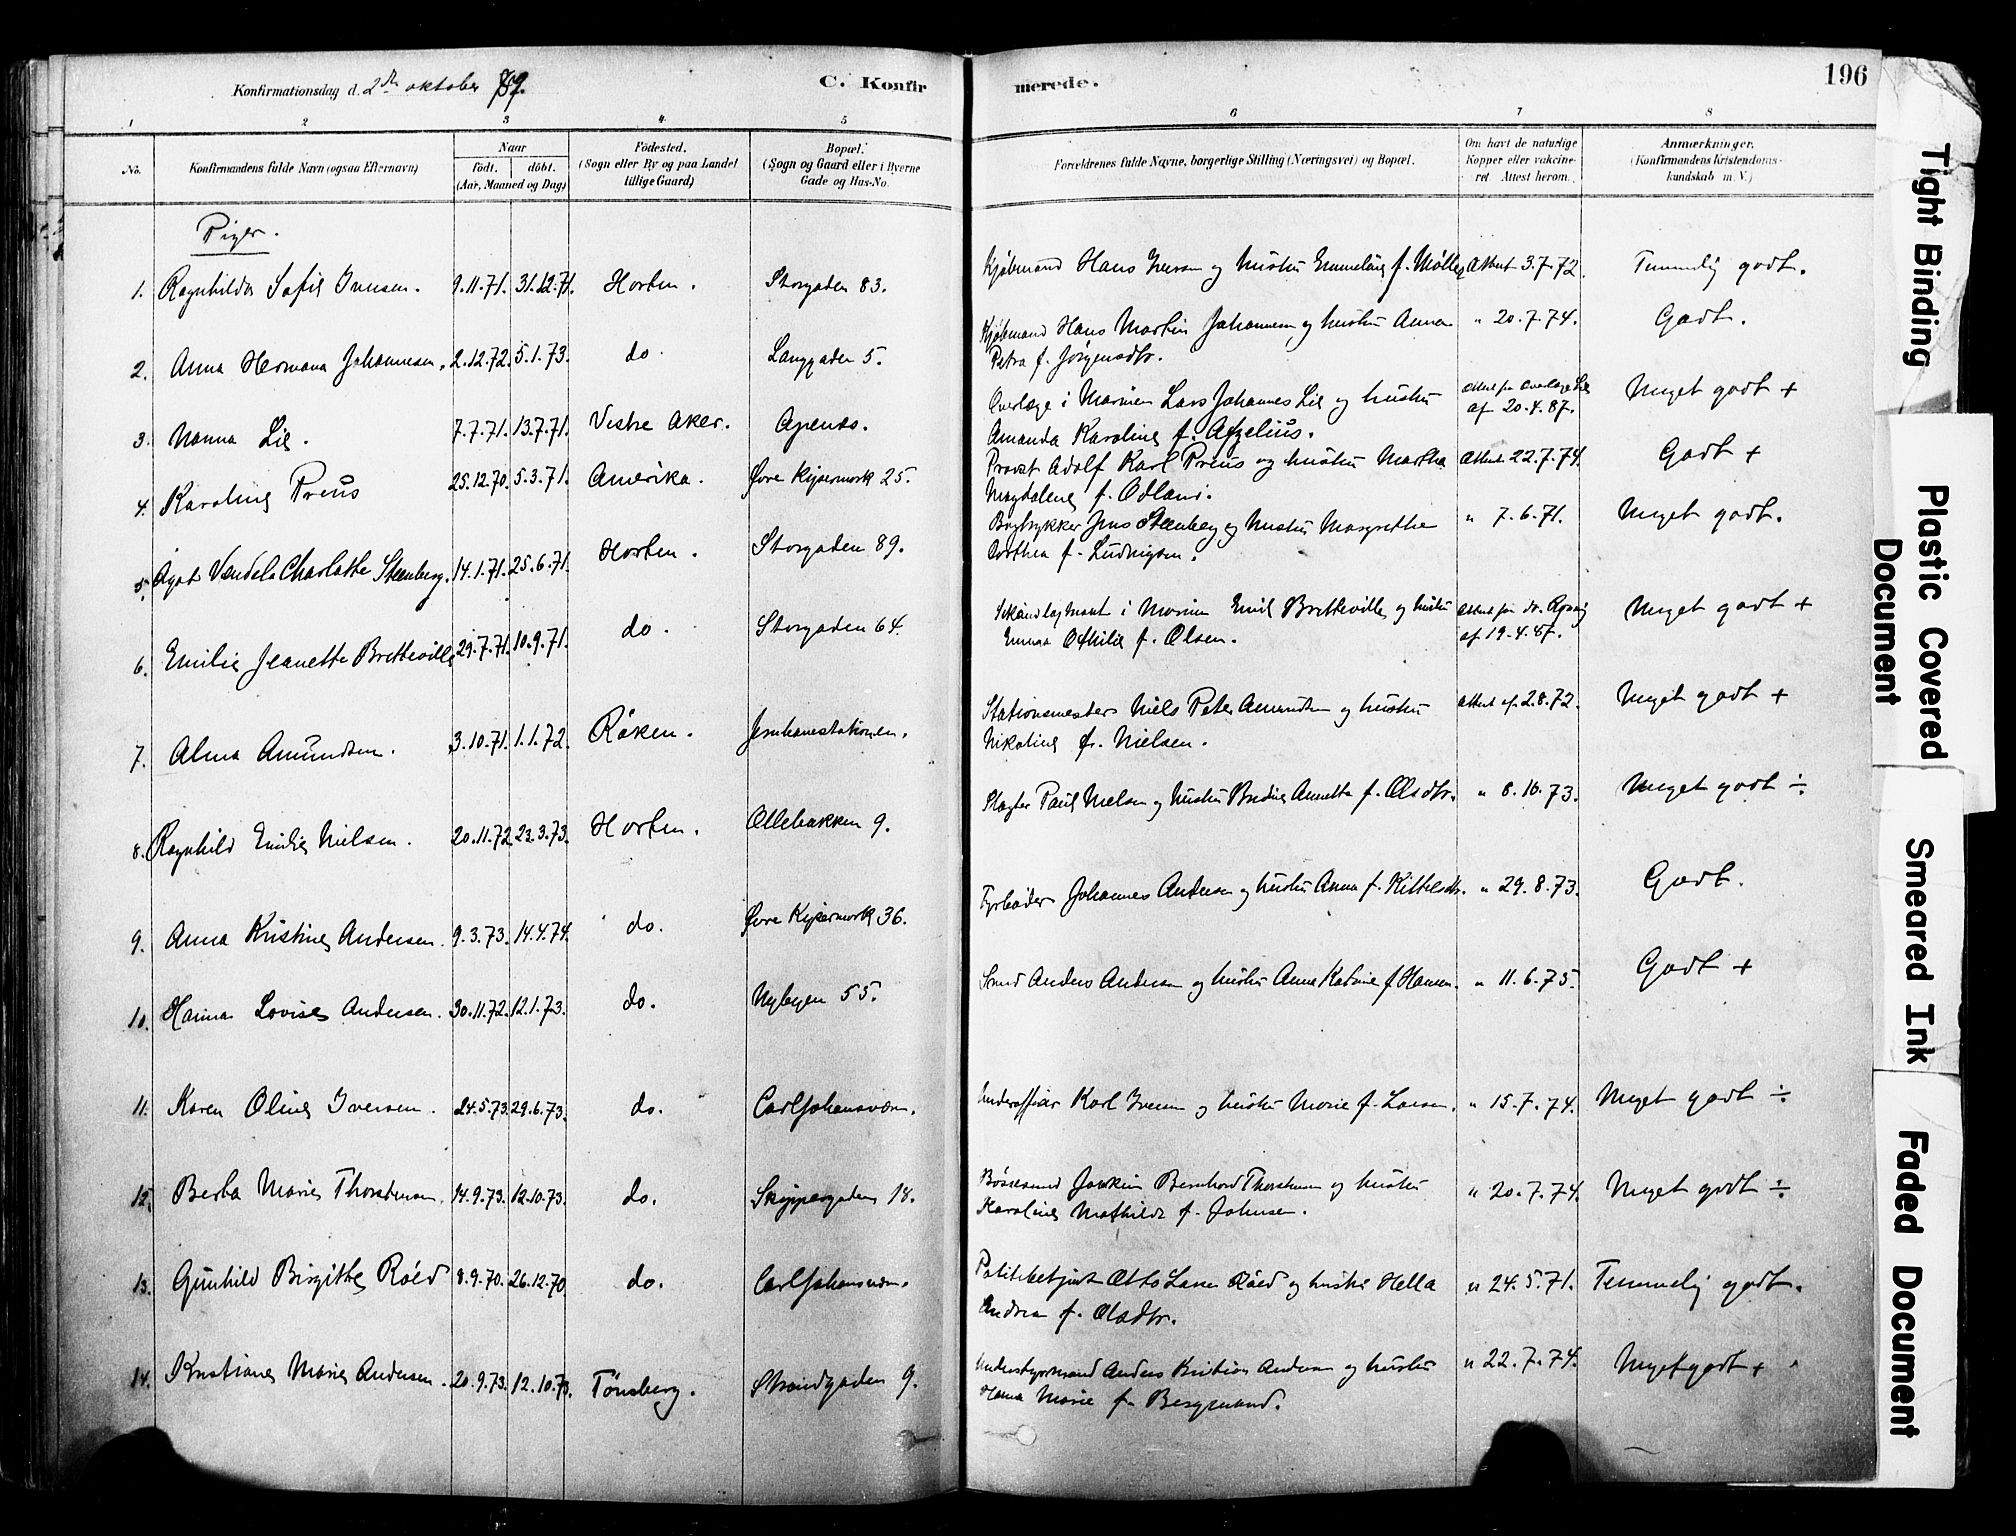 Konfirmationsdag d. 2den oktober 87.
C. Konfirmerede.
196
1 2 3 4 5 6 7 8
No.
Konfirmandens fulde Navn (ogsaa Efternavn)
Naar
födt. döbt.
(Aar, Maaned og Dag)
Födested.
(Sogn eller By og paa Landet
tillige Gaard)
Bopæl.
(Sogn og Gaard eller i Byerne
Gade og Hus-No.
Forældrenes fulde Navne, borgerlige Stilling (Næringsvei) og Bopæl.
Om havt de naturlige
Kopper eller vakcine-
ret. Attest herom.
Anmærkninger.
(Konfirmandens Kristendoms-
kundskab m. V.)
Piger.
1. Ragnhilda Sofie Iversen. 9.11.71. 31.12.71. Horten. Storgaden 83. Kjöbmand Hans Iversen og hustru Emmeline f. Møller Attest 3.7.72. Temmelig godt.
2. Anna Hermana Johannesen. 2.12.72. 5.1.73. do. Langgaden 5. Kjöbmand Hans Martin Johannesen og hustru Anna
Petra f. Jörgensdtr. " 20.7.74. Godt.
3. Nanna Lie. 7.7.71. 13.7.71. Vestre Aker. Apenæs. Overlæge i Marinen Lars Johannes Lie og hustru
Amanda Karoline f. Afzelius. Attest fra Overlæge Lie
af 20.4.87. Meget godt +
4. Karoline Preus 25.12.70. 5.3.71. Amerika. Øvre Keisermark 25. Provst Adolf Karl Preus og hustru Martha
Magdalene f. Odland. Attest 22.7.74. Godt +
5. Agot Vendela Charlotte Steenberg. 14.1.71. 25.6.71. Horten. Storgaden 89. Bogtrykker Jens Steenberg og hustru Margrethe
Dorthea f. Ludvigsen. " 7.6.71. Meget godt.
6. Emilie Jeanette Bretteville 29.7.71. 10.9.71. do. Storgaden 64. Sekondløjtnant i Marinen Emil Bretteville og hustru
Emma Othilie f. Olsen. Attest fra dr.
af 19.4.87. Meget godt +
7. Alma Amundsen. 3.10.71. 1.1.72. Röken. Jernbanestationen. Stationsmester Niels Peter Amundsen og hustru
Nikoline f. Nielsen. Attest af 2.8.72. Meget godt +
8. Ragnhild Emilie Nielsen. 20.11.72. 23.3.73. Horten. Ollebakken 9. Slagter Paul Nielsen og hustru Bredine Annette f. Olsdtr. " 8.10.73. Meget godt ÷
9. Anna Kristine Andersen. 9.3.73. 14.4.74. do. Øvre Keisermark 36. Fyrbøder Johannes Andersen og hustru Anna f. Kittelsdtr. " 29.8.73. Godt.
10. Hanna Lovise Andersen. 30.11.72. 12.1.73. do. Nybyen 55. Smed Anders Andersen og hustru Anna Katrine f. Hansen. " 11.6.75. Godt +
11. Karen Oline Iversen. 24.5.73. 29.6.73. do. Carljohansværn. Underofficer Karl Iversen og hustru Marie f. Larsen. " 15.7.74. Meget godt ÷
12. Berta Marie Thorstensen. 14.9.73. 12.10.73. do. Skippergaden 18. Bössesmed Joakim Bernhard Thorstensen og hustru
Karoline Mathilde f. Johnsen. " 20.7.74. Meget godt ÷
13. Gunhild Birgitte Röed 8.9.70. 26.12.70 do. Carljohansværn. Politibetjent Otto Larsen Röed og hustru Hella
Andrea f. Olsdtr. " 24.5.71. Temmelig godt.
14. Kristiane Marie Andersen. 20.9.73. 12.10.73. Tönsberg. Strandgaden 9. Understyrmand Anders Kristian Andersen og hustru
Hanna Marie f. Bergmand. " 22.7.74. Meget godt +
Tight Binding
Plastic Covered
Document
Smeared Ink
Faded Document